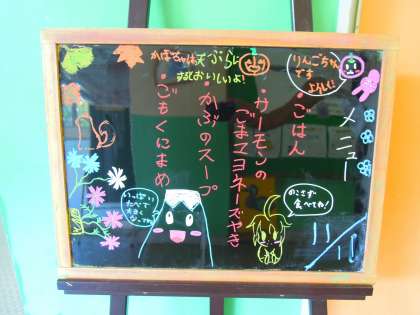 メニュー
・ごはん
・サーモンの
ごまマヨネーズやき
・かぶのスープ
・ごもくにまめ
かぼちゃは天ぷらに
するとおいしいよ!
りんごちゃん
です
よろしく!
いっぱい
たべて
大きく
なってね!
のこさず
食べてね!